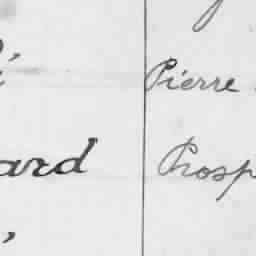 Pierre
ard Prosp